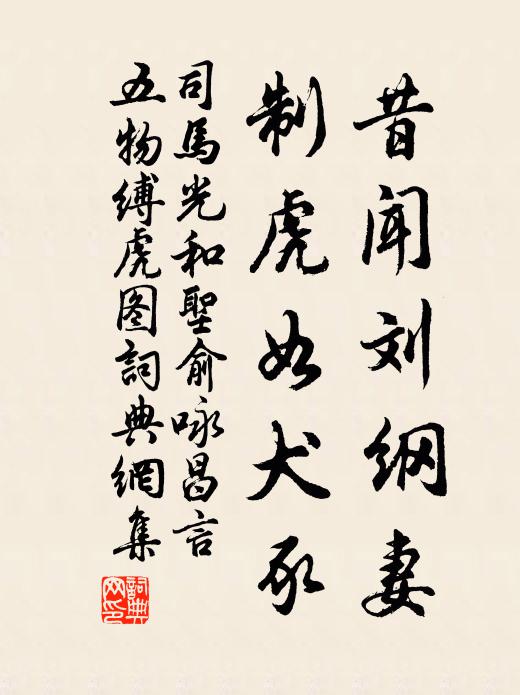 昔闻刘纲妻
制虎如犬豕
司馬光和聖俞咏昌言
五物缚虎图詞典網集
詞典网印